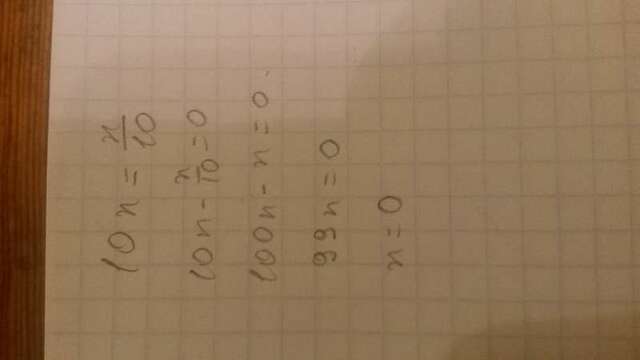 10x = x/10
10x - x/10 = 0
100x - x = 0.
99x = 0
x = 0